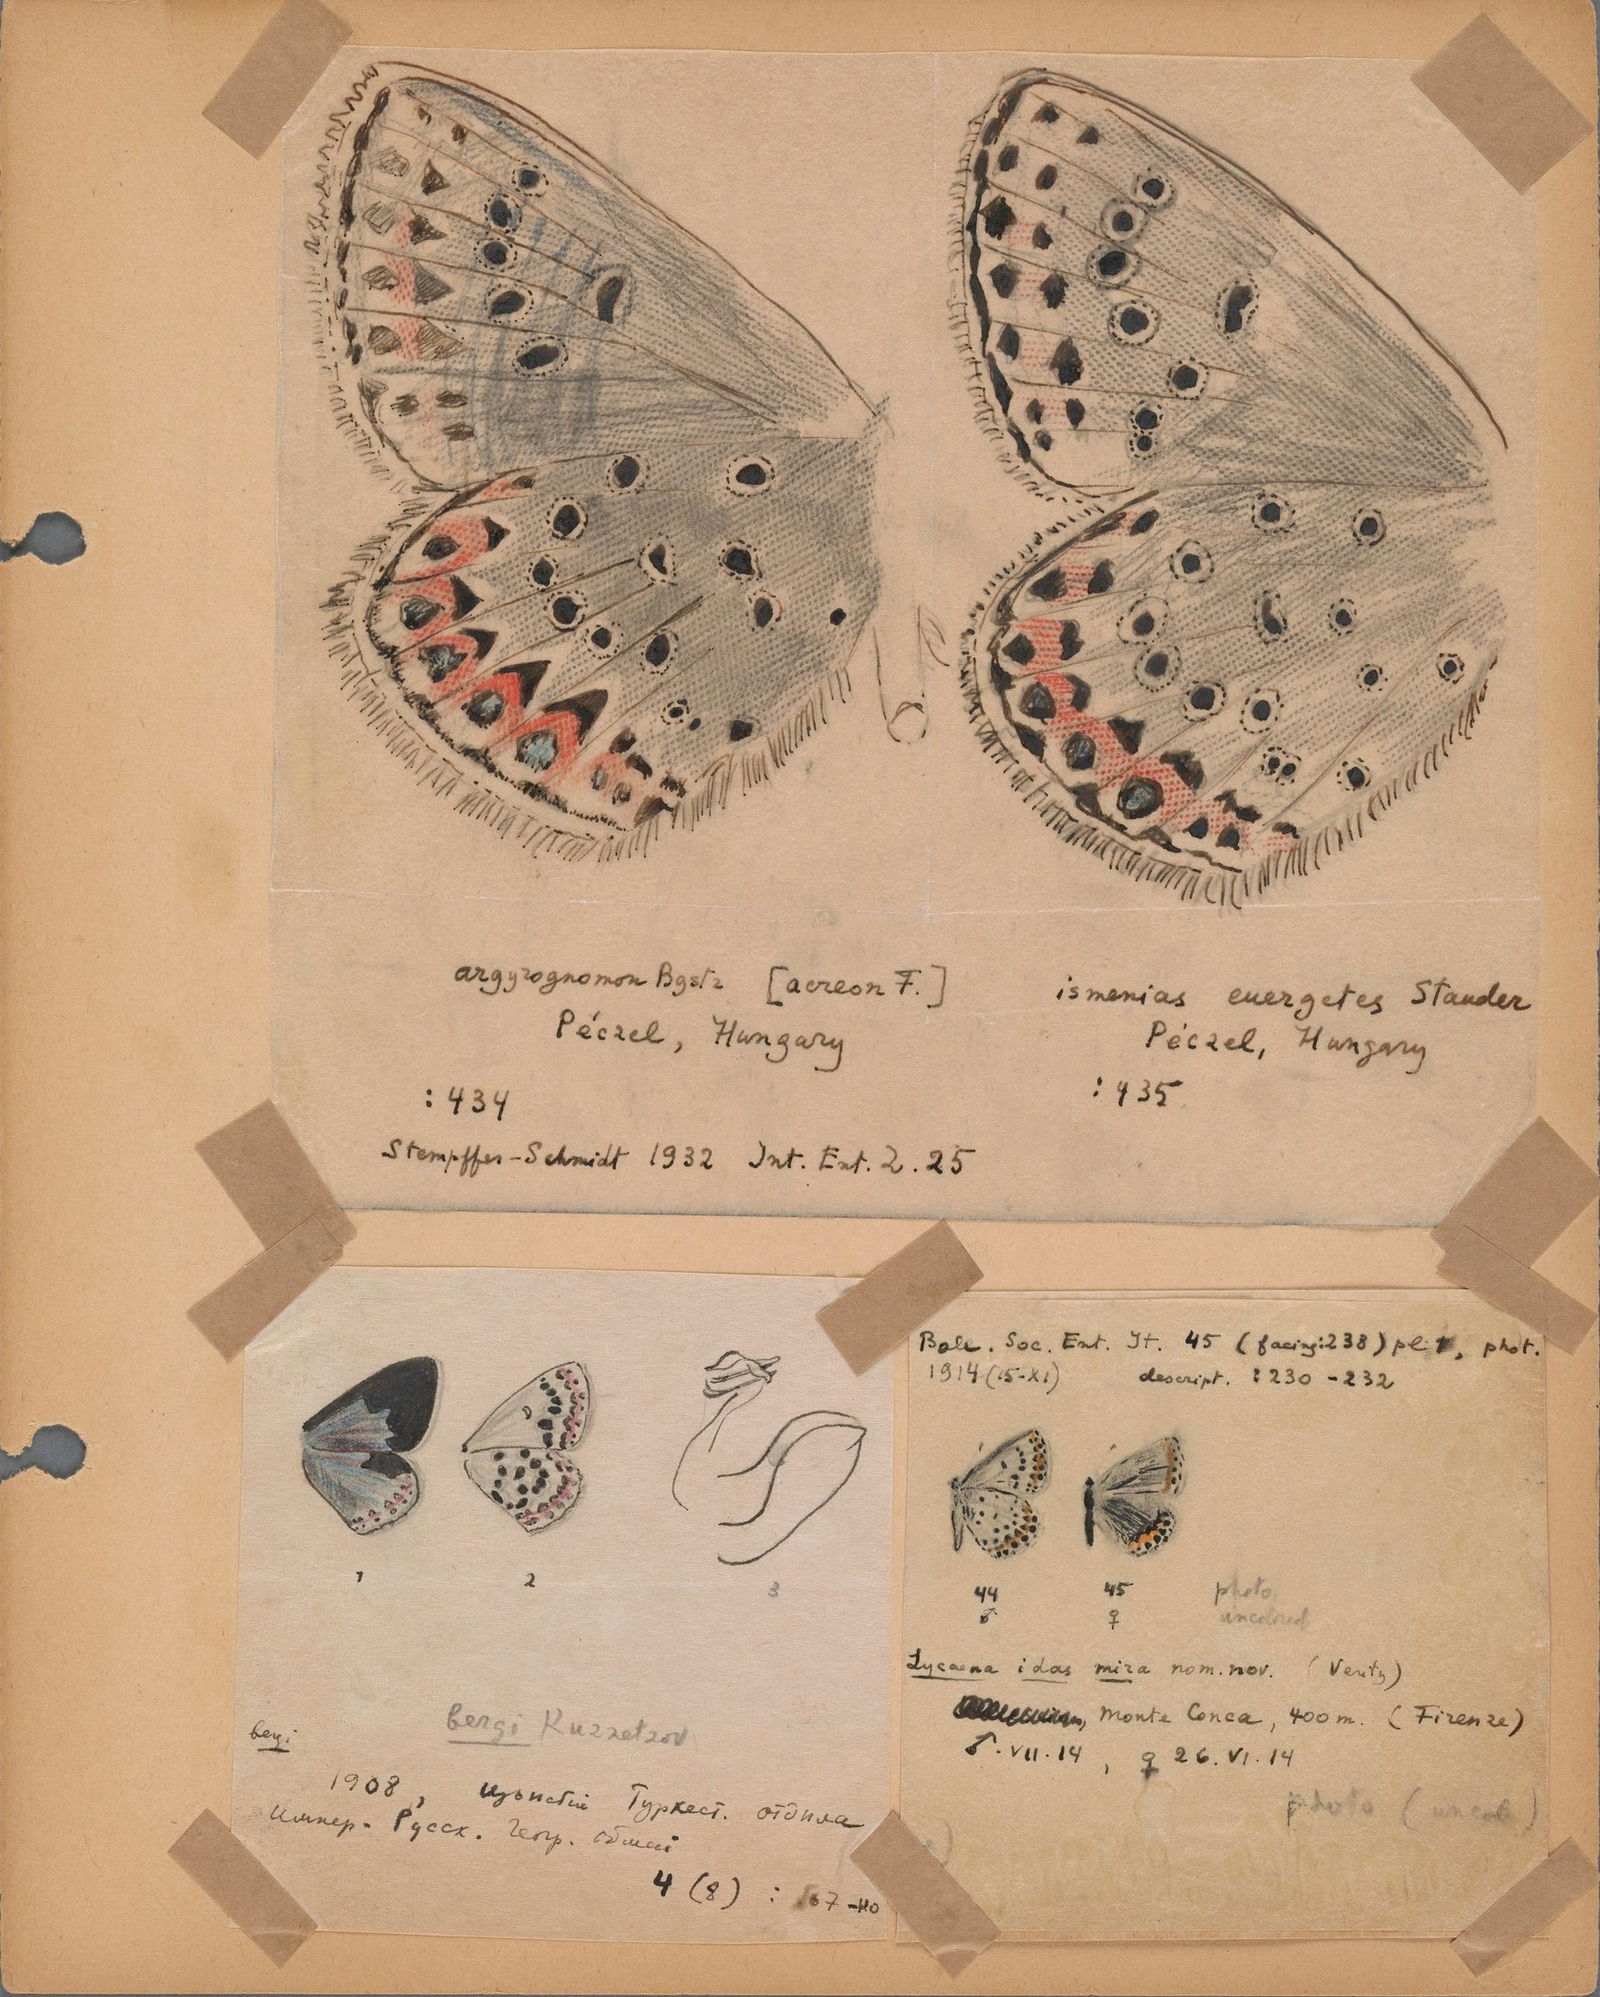 argyrognomon Bgstr [acreon F.]
Péczel, Hungary
:434
ismenias euergetes Stauder
Péczel, Hungary
:435
Stempffer-Schmidt 1932 Int. Ent. Z. 25
1 2 3
bergi Kuznetzov
bergi
1908, Туркест. отдѣла
Импер. Русск. Геогр.
4 (8) : 67-110
Boll. Soc. Ent. It. 45 (facing:238) pl. 1, phot.
1914 (15-XI) descript. :230-232
44 45 photo
♂ ♀ uncolored
Lycaena idas mira nom. nov. (Verity)
Monte Conca, 400 m. (Firenze)
♂. VII. 14, ♀ 26. VI. 14
photo (uncol.)